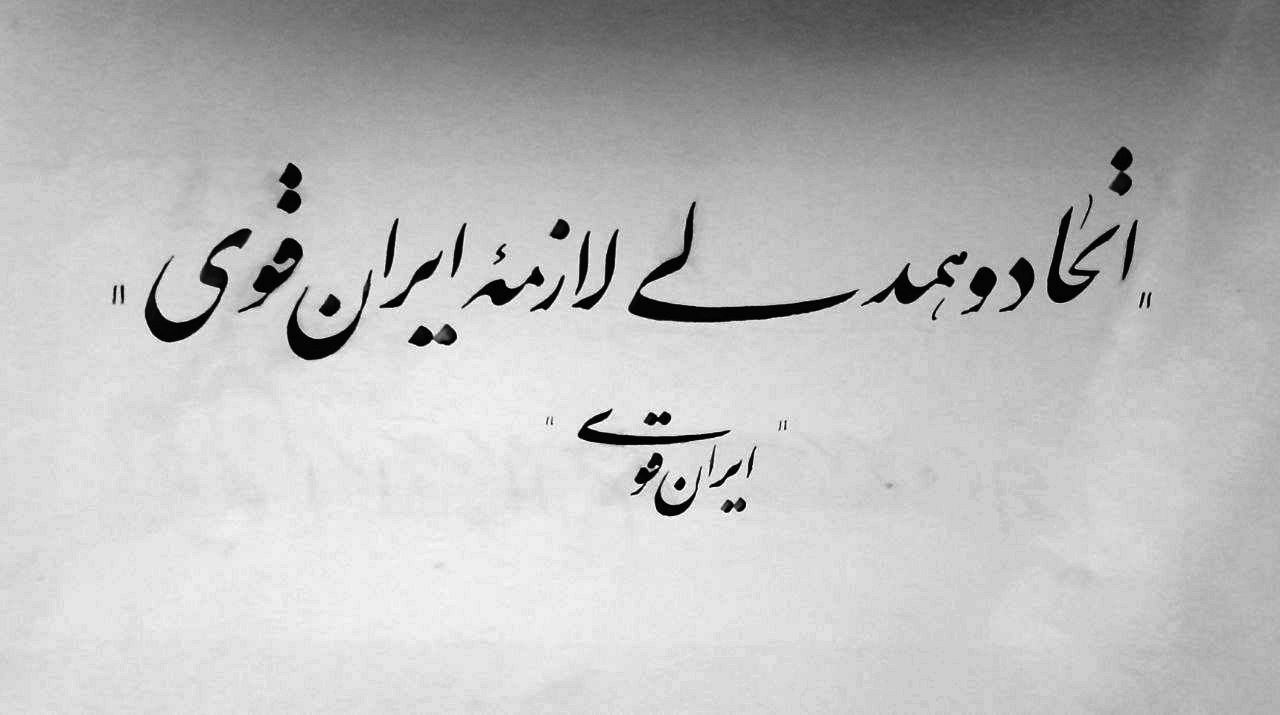 "اتحاد و همدلی لازمهٔ ایران قوی"
"ایران قوی"